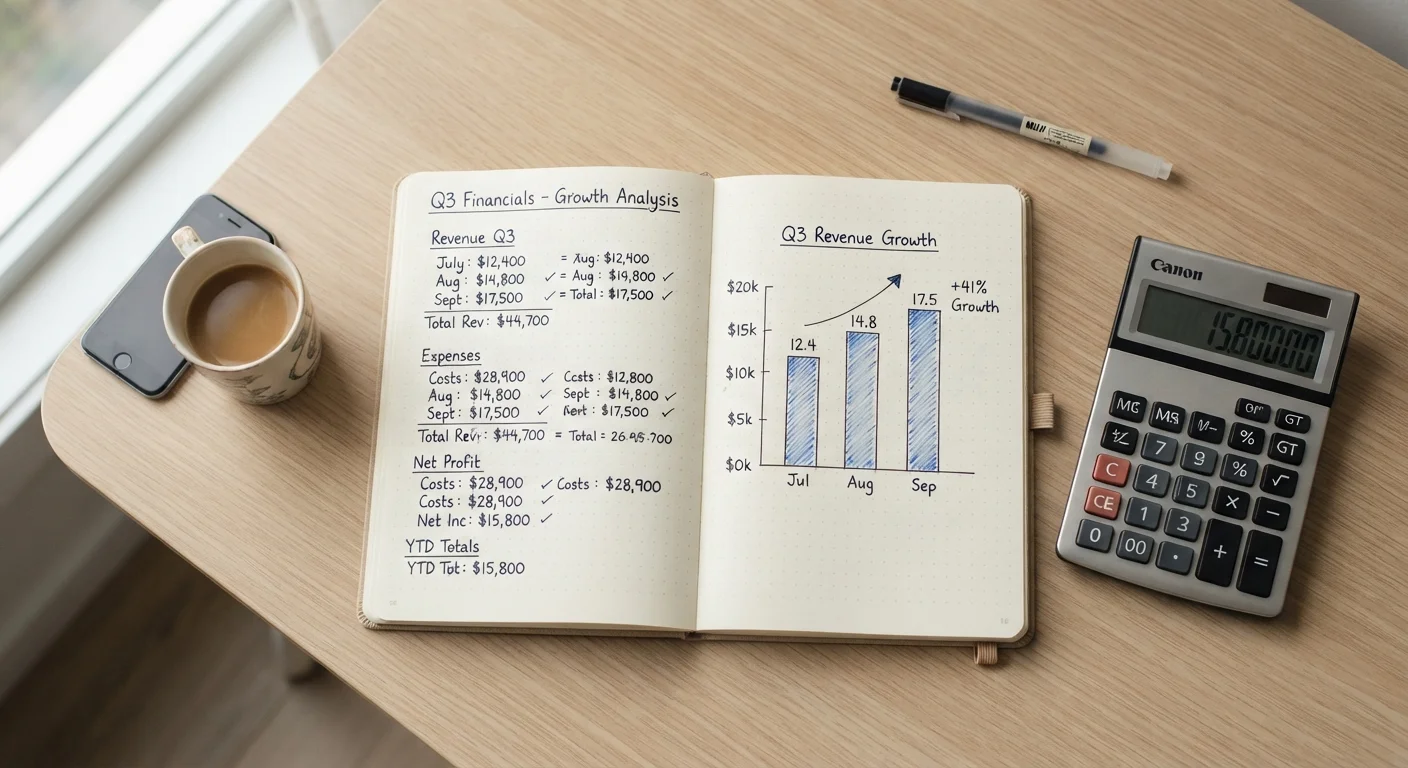 Q3 Financials – Growth Analysis
Revenue Q3
July : $12,400 = Aug: $12,400
Aug : $14,800 ✓ = Aug : $19,800 ✓
Sept : $17,500 ✓ = Total : $17,500 ✓
Total Rev: $44,700
Expenses
Costs : $28,900 ✓ Costs : $12,800
Aug : $14,800 ✓ Sept : $14,800 ✓
Sept : $17,500 ✓ : $17,500 ✓
Total Rev: $44,700 = Total =
Net Profit
Costs : $28,900 ✓ Costs : $28,900
Costs : $28,900 ✓
Net Inc : $15,800 ✓
YTD Totals
YTD Tot: $15,800
Q3 Revenue Growth
+41%
Growth
$20k
$15k
$10k
$5k
$0k
12.4
14.8
17.5
Jul Aug Sep
Canon
MC MS M− GT
7 9 % GT
C 4 5 % √
CE 1 3 × −
0 00 · + =